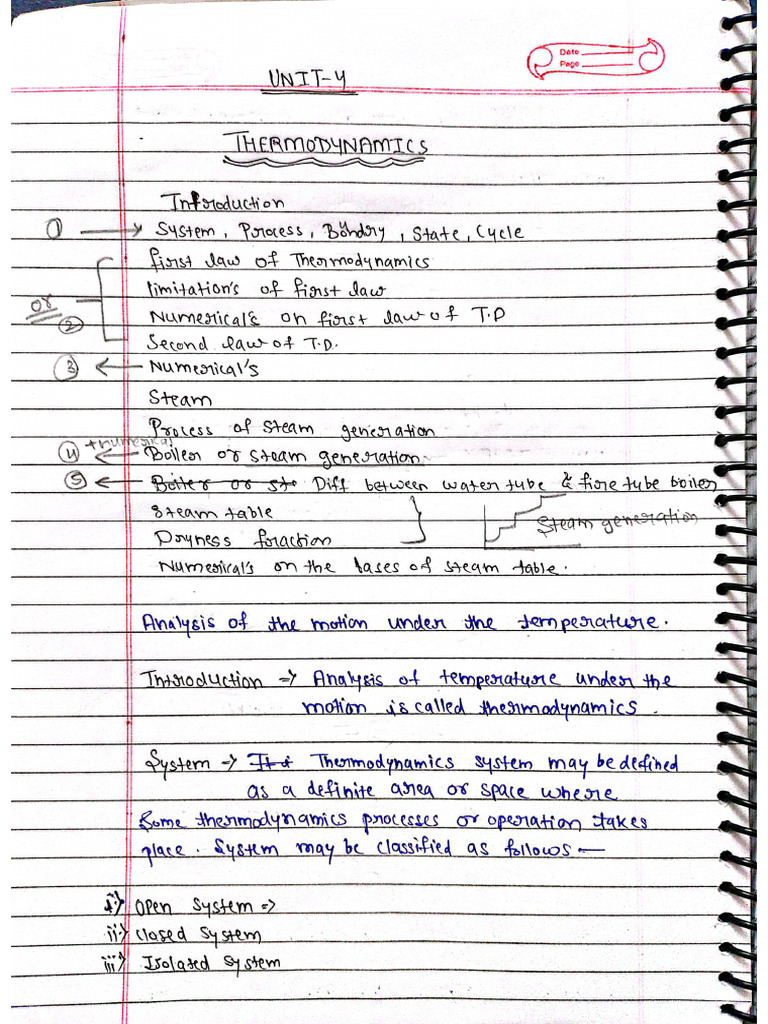 Date
Page
UNIT-4
THERMODYNAMICS
Introduction
① → System, Process, Bondry, State, Cycle
first law of Thermodynamics
limitation's of first law
or
② Numerical's on first law of T.D
Second law of T.D.
③ ← Numerical's
Steam
Process of steam generation
+numerical
④ ← Boiler or steam generation.
⑤ ← Boiler or ste Diff between water tube & fire tube boiler
Steam table
Steam generation
Dryness fraction
Numerical's on the bases of steam table.
Analysis of the motion under the temperature.
Introduction → Analysis of temperature under the
motion is called thermodynamics.
System → It Thermodynamics system may be defined
as a definite area or space where
Some thermodynamics processes or operation takes
place. System may be classified as follows —
i) Open System ⇒
ii) Closed System
iii) Isolated System